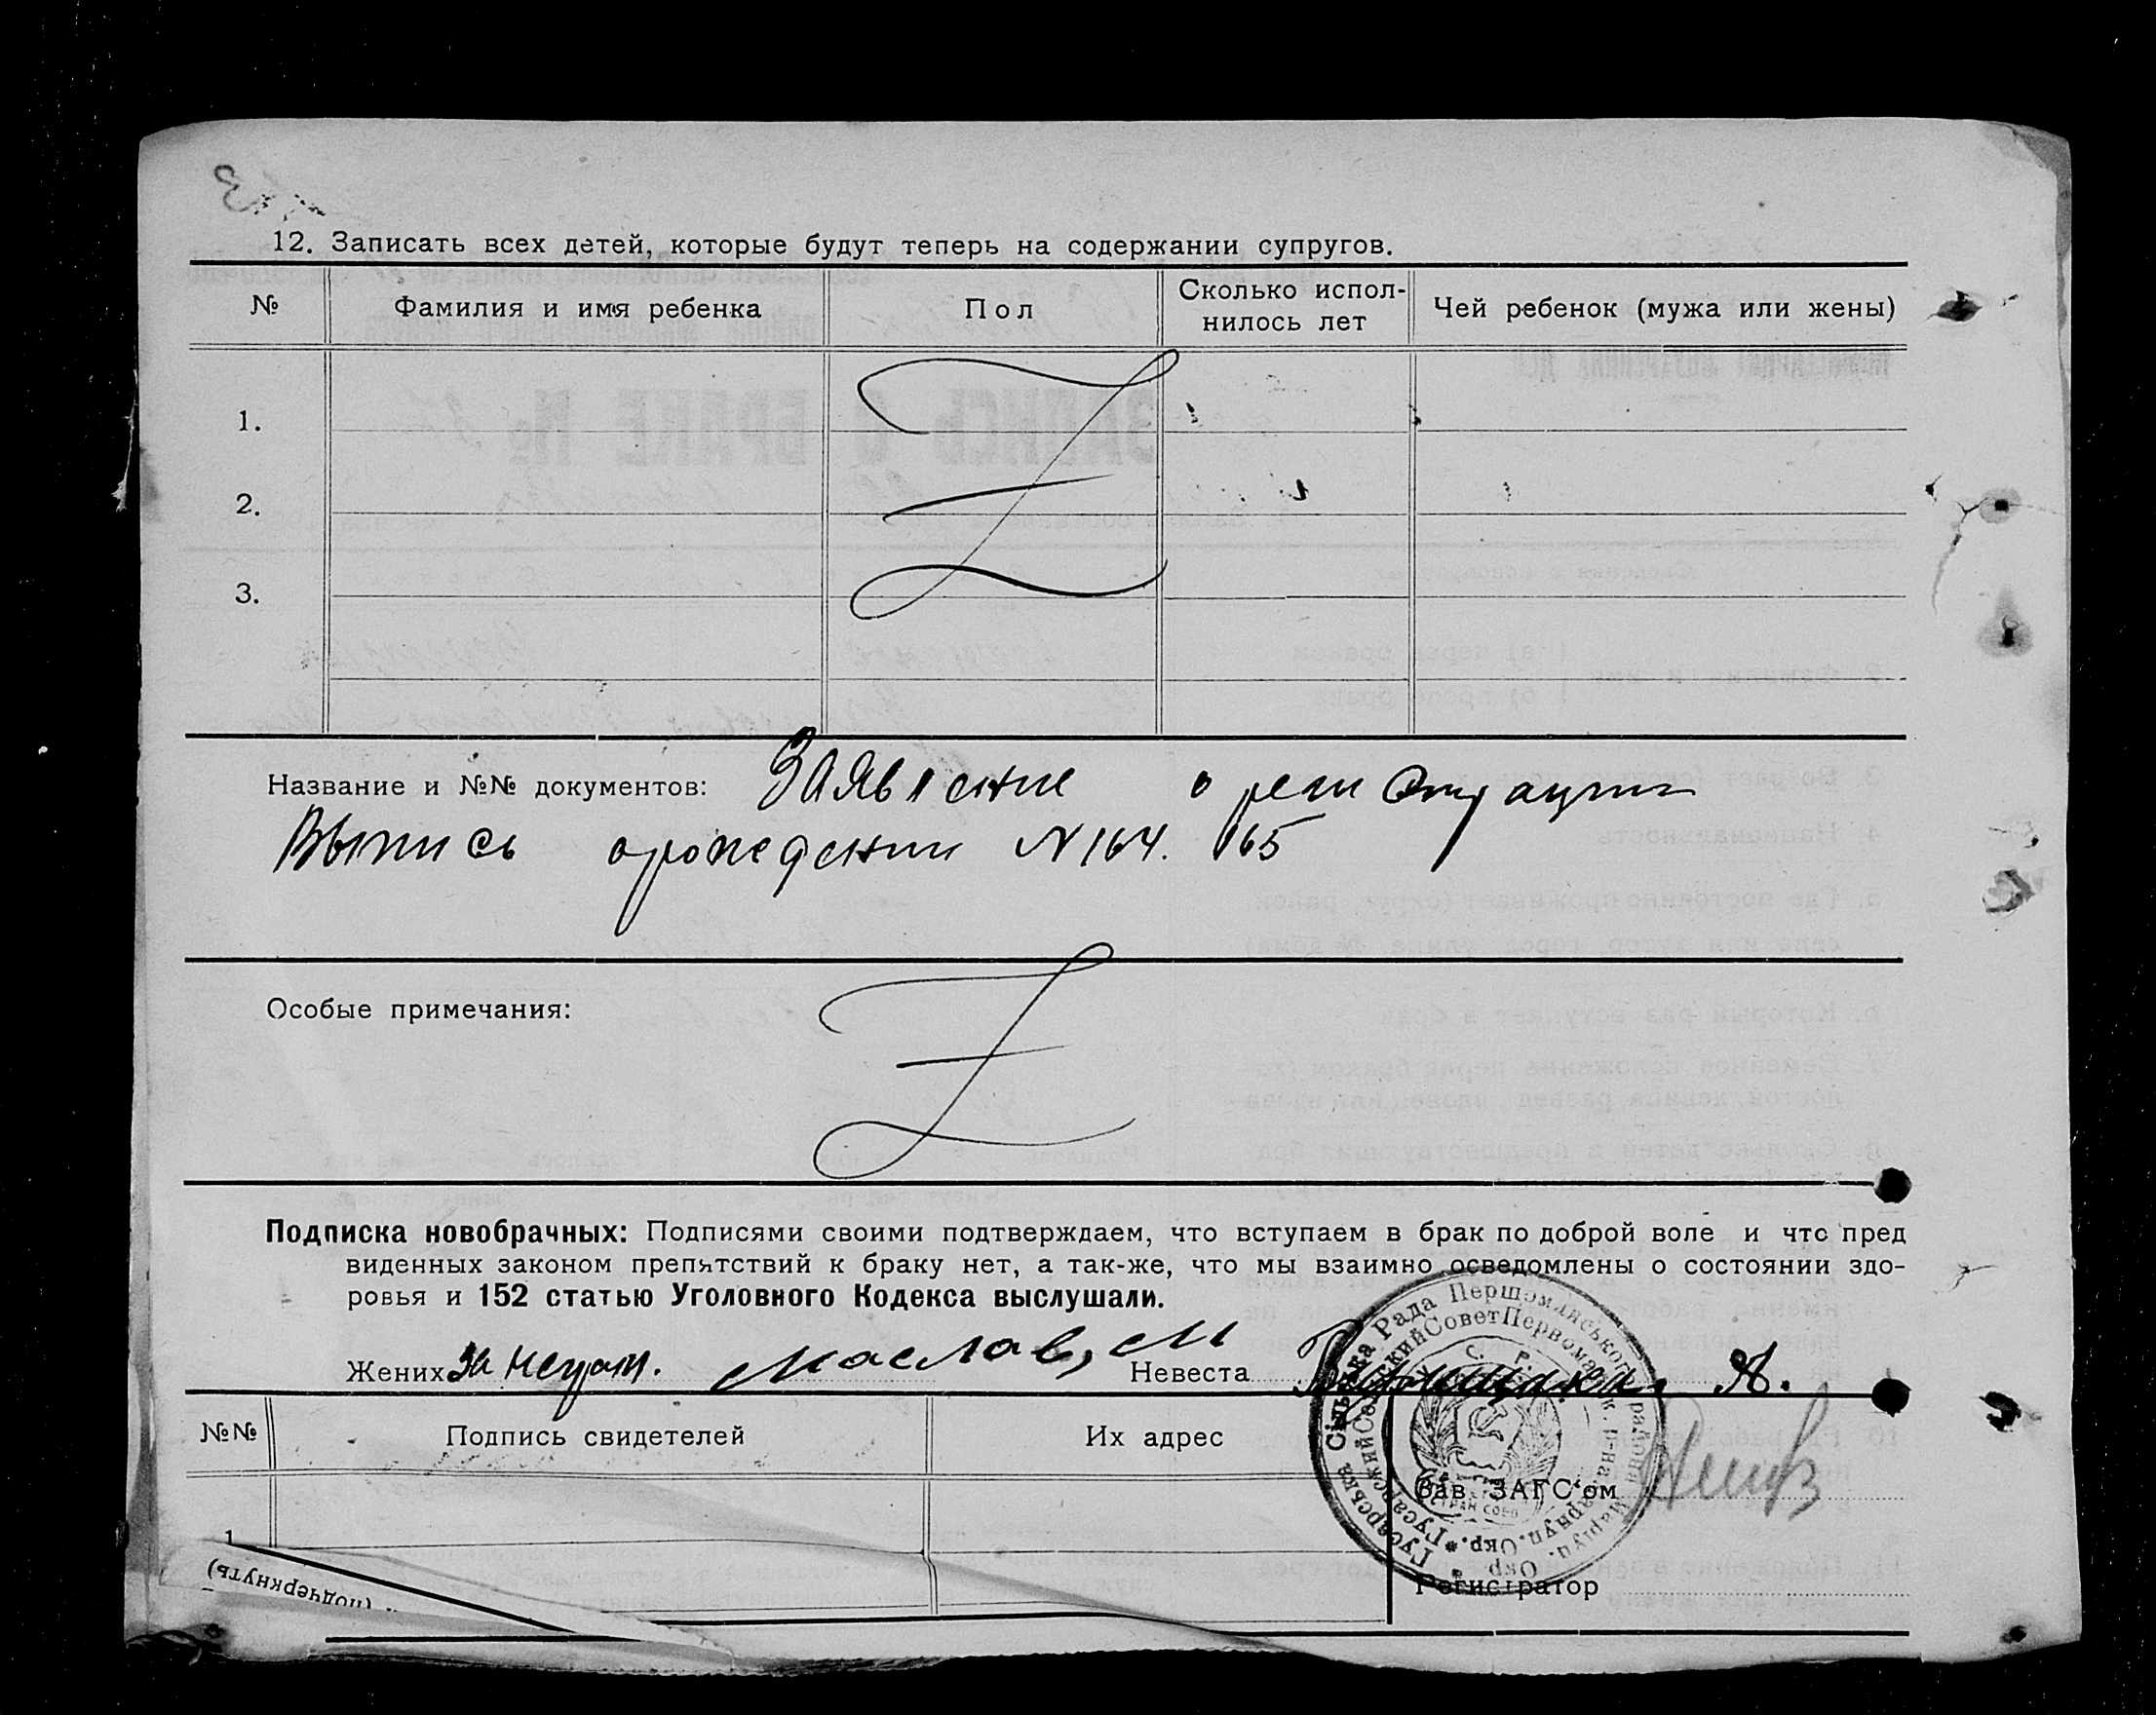 12. Записать всех детей, которые будут теперь на содержании супругов.
№ Фамилия и имя ребенка Пол Сколько испол-нилось лет Чей ребенок (мужа или жены)
1.
2.
3.
Название и №№ документов: Заявление о регистрации
Выпись о рождении N 164. 165
Особые примечания:
Подписка новобрачных: Подписями своими подтверждаем, что вступаем в брак по доброй воле и что пред
виденных законом препятствий к браку нет, а так-же, что мы взаимно осведомлены о состоянии здо-
ровья и 152 статью Уголовного Кодекса выслушали.
Жених за неграм. Маслов, М Невеста Я.
№№ Подпись свидетелей Их адрес
Зав. ЗАГС'ом
1
Регистратор
(подчеркнуть)
Гусарська Сільська Рада Першомайського району Маріуп. Окр.
Гусарский Сельский Совет Первомайск. р-на Мариуп. Окр.